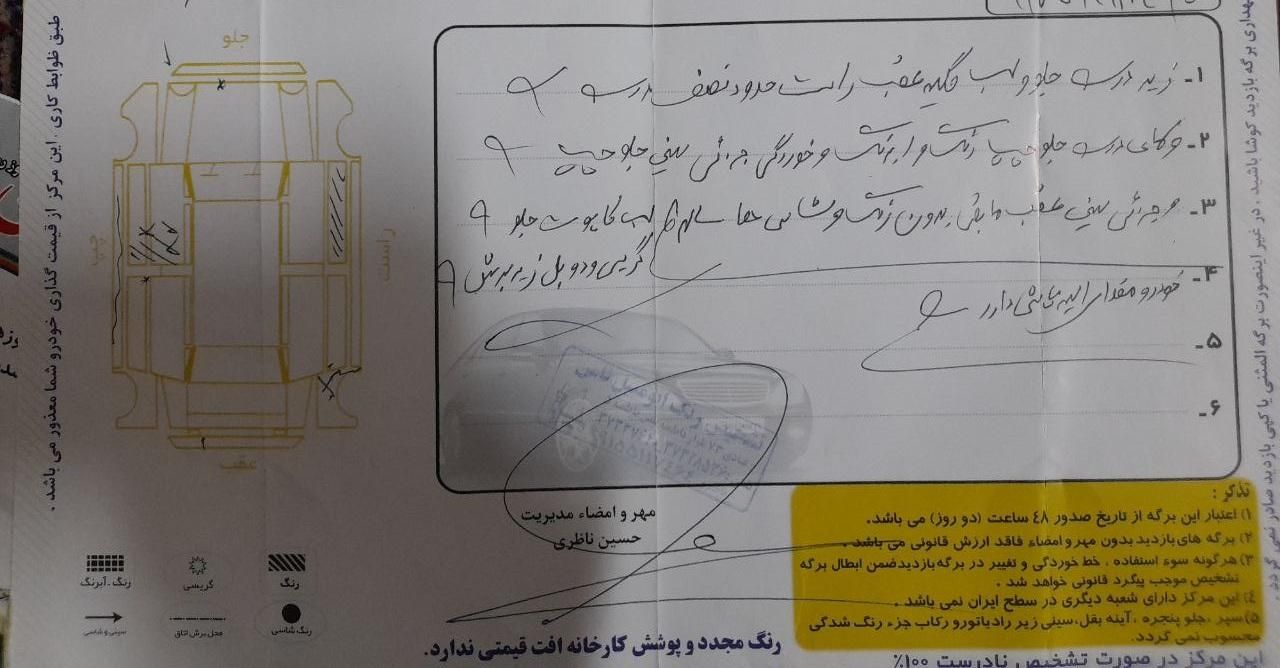 جلو
راست
چپ
عقب
۱- زیر درب جلو و لب گلگیر عقب راست حدود نصف درب
۲- درب جلو چپ رنگ و خوردگی جزئی سینی جلو چپ
۳- جزئی سینی عقب مابقی بدون رنگ و شاسی ها سالم لب کاپوت جلو
۴- گریسی و دوبل زیر برش
خودرو مقداری دارد
۵-
۶-
مهر و امضاء مدیریت
حسین ناظری
تذکر :
۱) اعتبار این برگه از تاریخ صدور ٤٨ ساعت (دو روز) می باشد.
۲) برگه های بازدید بدون مهر و امضاء فاقد ارزش قانونی می باشد.
۳) هرگونه سوء استفاده ، خط خوردگی و تغییر در برگه بازدید ضمن ابطال برگه
تشخیص موجب پیگرد قانونی خواهد شد .
٤) این مرکز دارای شعبه دیگری در سطح ایران نمی باشد .
۵) سپر ، جلو پنجره ، آینه بغل، سینی زیر رادیاتور و رکاب جزء رنگ شدگی
محسوب نمی گردد.
رنگ
گریسی
رنگ - آبرنگ
رنگ شاسی
محل برش اتاق
سینی و شاسی
رنگ مجدد و پوشش کارخانه افت قیمتی ندارد.
این مرکز در صورت تشخیص نادرست ۱۰۰٪
طبق ظوابط کاری . این مرکز از قیمت گذاری خودرو شما معذور می باشد .
نگهداری برگه بازدید کوشا باشید . در غیر اینصورت برگه المثنی یا کپی بازدید صادر نمی گردد.